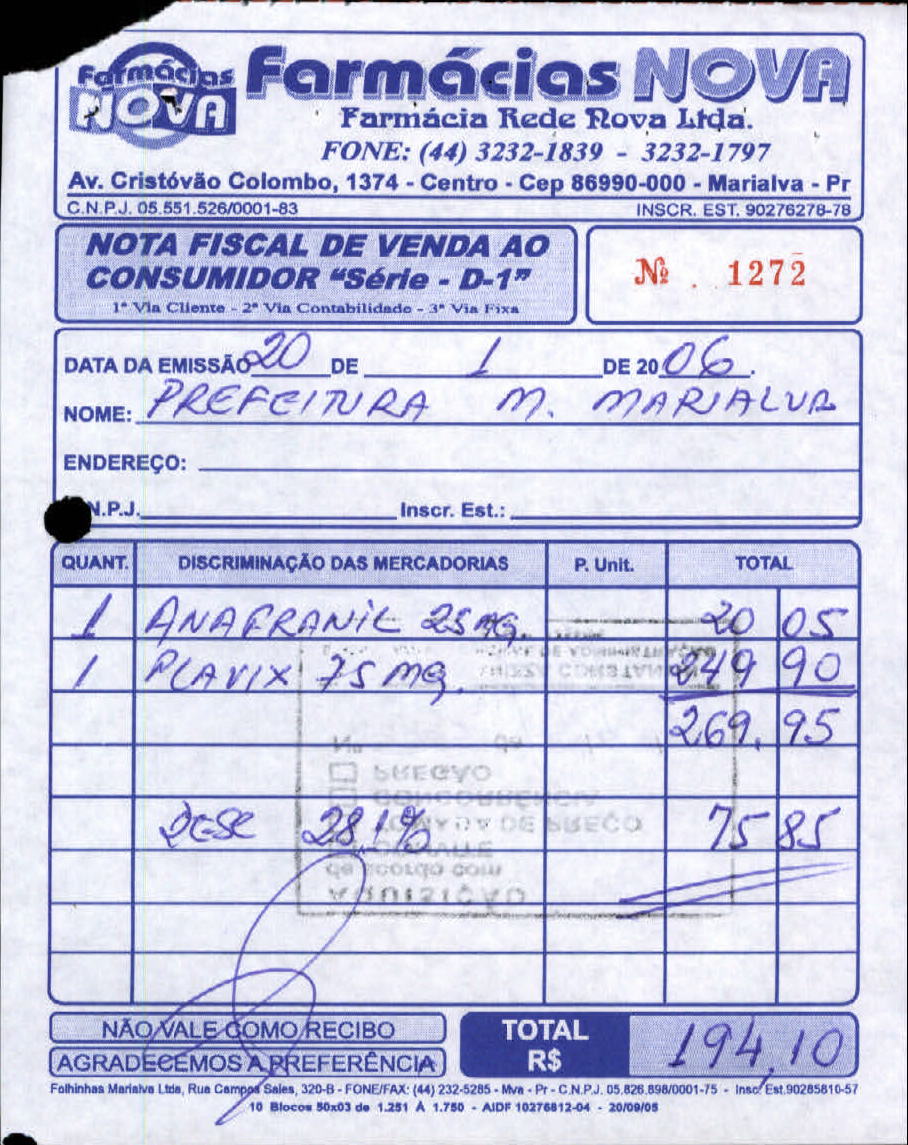 Farmácias NOVA
Farmácias NOVA
Farmácia Rede Nova Ltda.
FONE: (44) 3232-1839 - 3232-1797
Av. Cristóvão Colombo, 1374 - Centro - Cep 86990-000 - Marialva - Pr
C.N.P.J. 05.551.526/0001-83 INSCR. EST. 90276278-78
NOTA FISCAL DE VENDA AO
CONSUMIDOR "Série - D-1"
1ª Via Cliente - 2ª Via Contabilidade - 3ª Via Fixa
Nº 1272
DATA DA EMISSÃO 20 DE 1 DE 2006.
NOME: PREFEITURA M. MARIALVA
ENDEREÇO:
N.P.J. Inscr. Est.:
QUANT. DISCRIMINAÇÃO DAS MERCADORIAS P. Unit. TOTAL
1 ANAFRANIL 25 MG. 20 05
1 PLAVIX 75 MG. 249 90
269,95
DE ADMINISTRAÇÃO
Nº de
PREGÃO
CONCORRÊNCIA
TOMADA DE PREÇO
DESC 28,1% 75 85
CONVITE
de acordo com
AQUISIÇÃO
NÃO VALE COMO RECIBO
AGRADECEMOS A PREFERÊNCIA
TOTAL R$ 194,10
Folhinhas Marialva Ltda, Rua Campos Sales, 320-B - FONE/FAX: (44) 232-5285 - Mva - Pr - C.N.P.J. 05.826.898/0001-75 - Insc. Est.90285810-57
10 Blocos 50x03 de 1.251 À 1.750 - AIDF 10276812-04 - 20/09/05